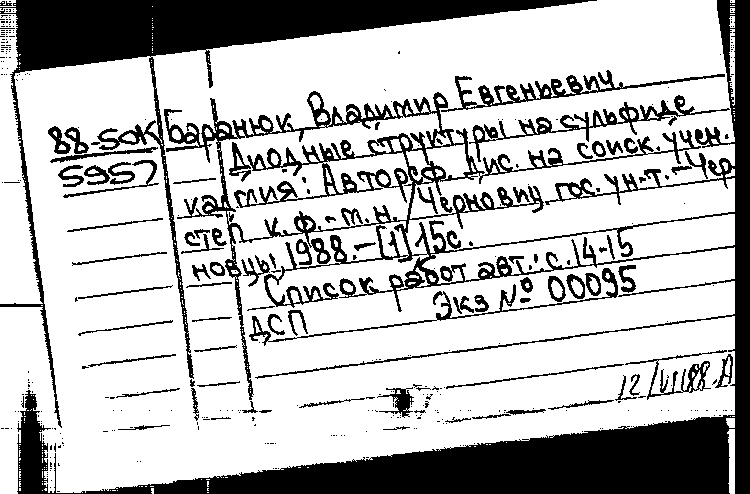 88-50K Баранюк, Владимир Евгеньевич.
5957 Диодные структуры на сульфиде
кадмия: Автореф. Дис. на соиск. учен.
степ к. ф.-м.н. / Черновиц. гос. ун-т. - Чер
новцы, 1988. - [1] 15с.
Список работ авт.: с. 14-15
ДСП Экз № 00095
12/VII88.